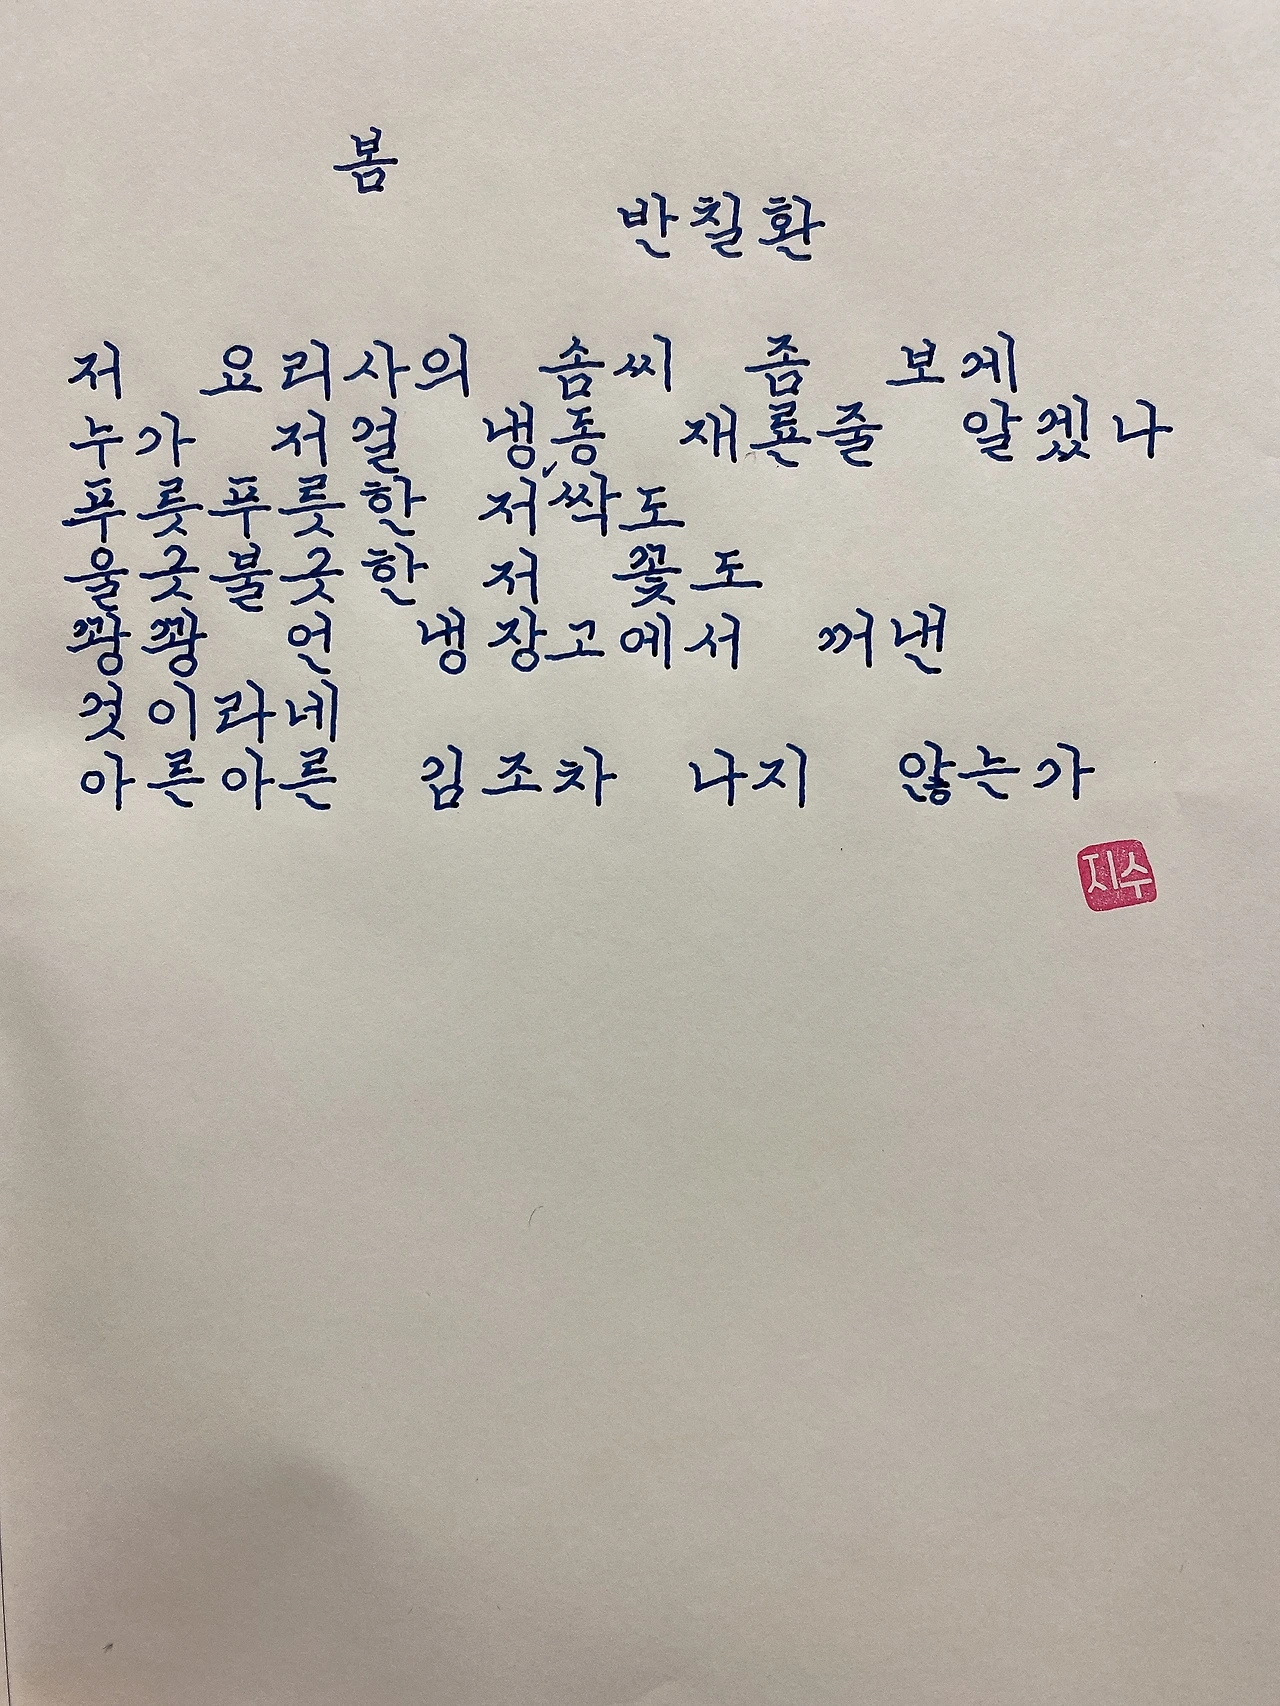 봄
반칠환
저 요리사의 솜씨 좀 보게
누가 저걸 냉동 재룐줄 알겠나
푸릇푸릇한 저✓싹도
울긋불긋한 저 꽃도
꽝꽝 언 냉장고에서 꺼낸
것이라네
아른아른 김조차 나지 않는가
지수